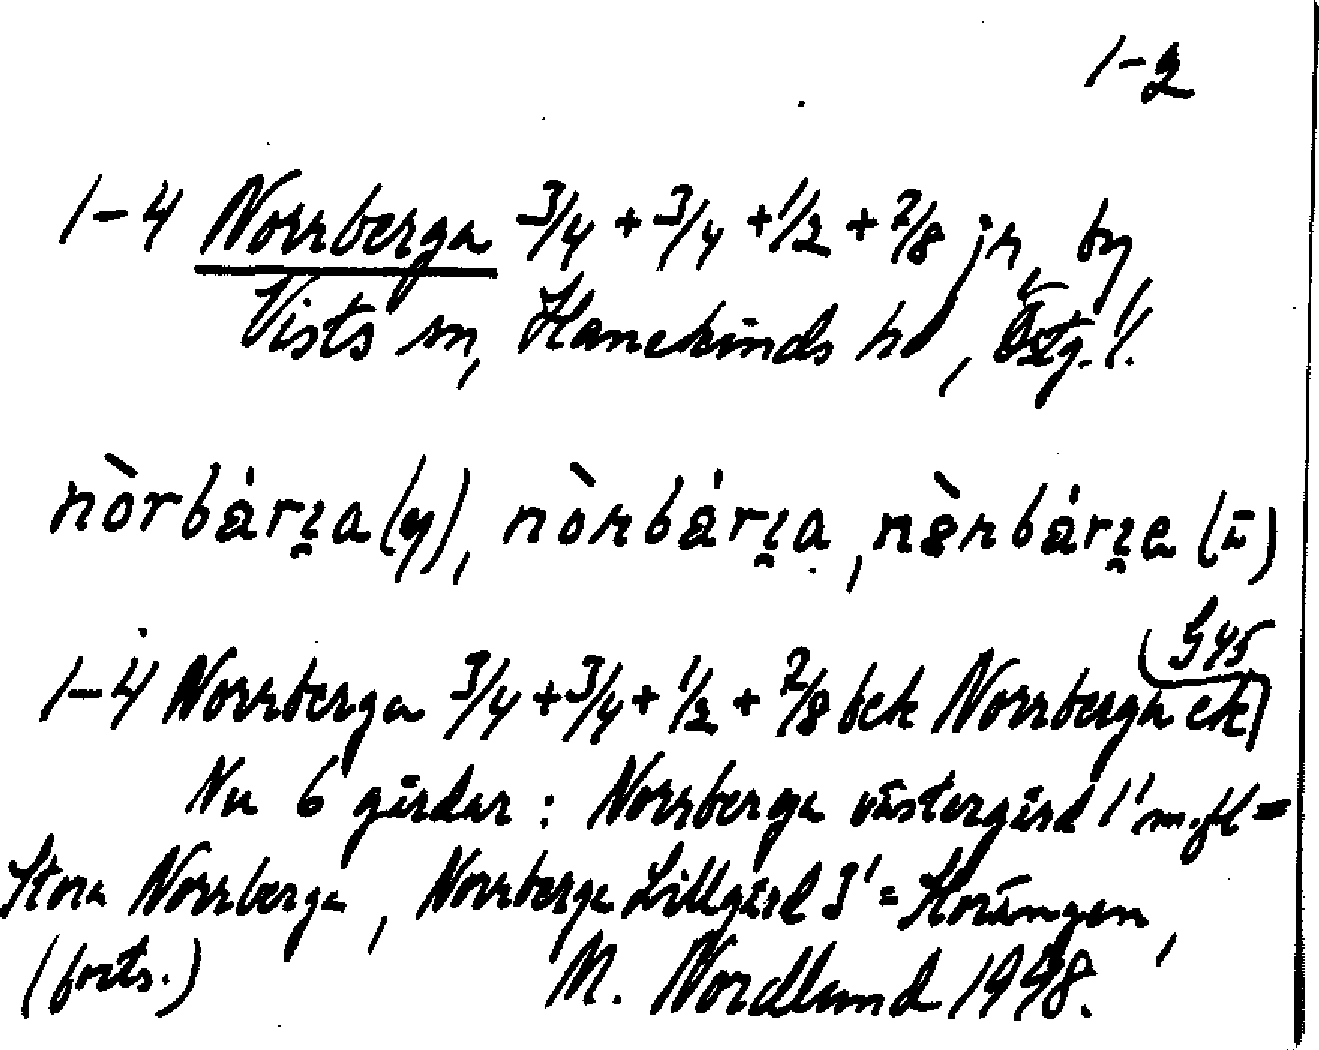 1-2
1-4 Norrberga 3/4 + 3/4 + 1/2 + 7/8 jn, by
Vists sn, Hanekinds hd, Östg. l.
nòrbárɩ̯a (y), nòrbárɩ̯a, bárɩ̯e (ü)
G45
1-4 Norrberga 3/4 + 3/4 + 1/2 + 7/8 bek Norrberga ek)
Nu 6 gårdar: Norrberga västergård 1' m.fl =
Stora Norrberga, Norrberga Lillgård 3' = Storängen,
(forts.) M. Nordlund 1998.